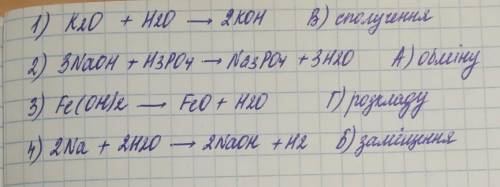 1) K2O + H2O → 2KOH В) сполучення
2) 3NaOH + H3PO4 → Na3PO4 + 3H2O А) обміну
3) Fe(OH)2 → FeO + H2O Г) розкладу
4) 2Na + 2H2O → 2NaOH + H2 Б) заміщення